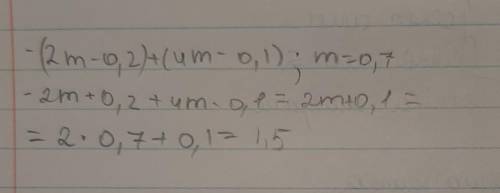 -(2m-0,2)+(4m-0,1); m=0,7
-2m+0,2+4m-0,1=2m+0,1=
=2·0,7+0,1=1,5